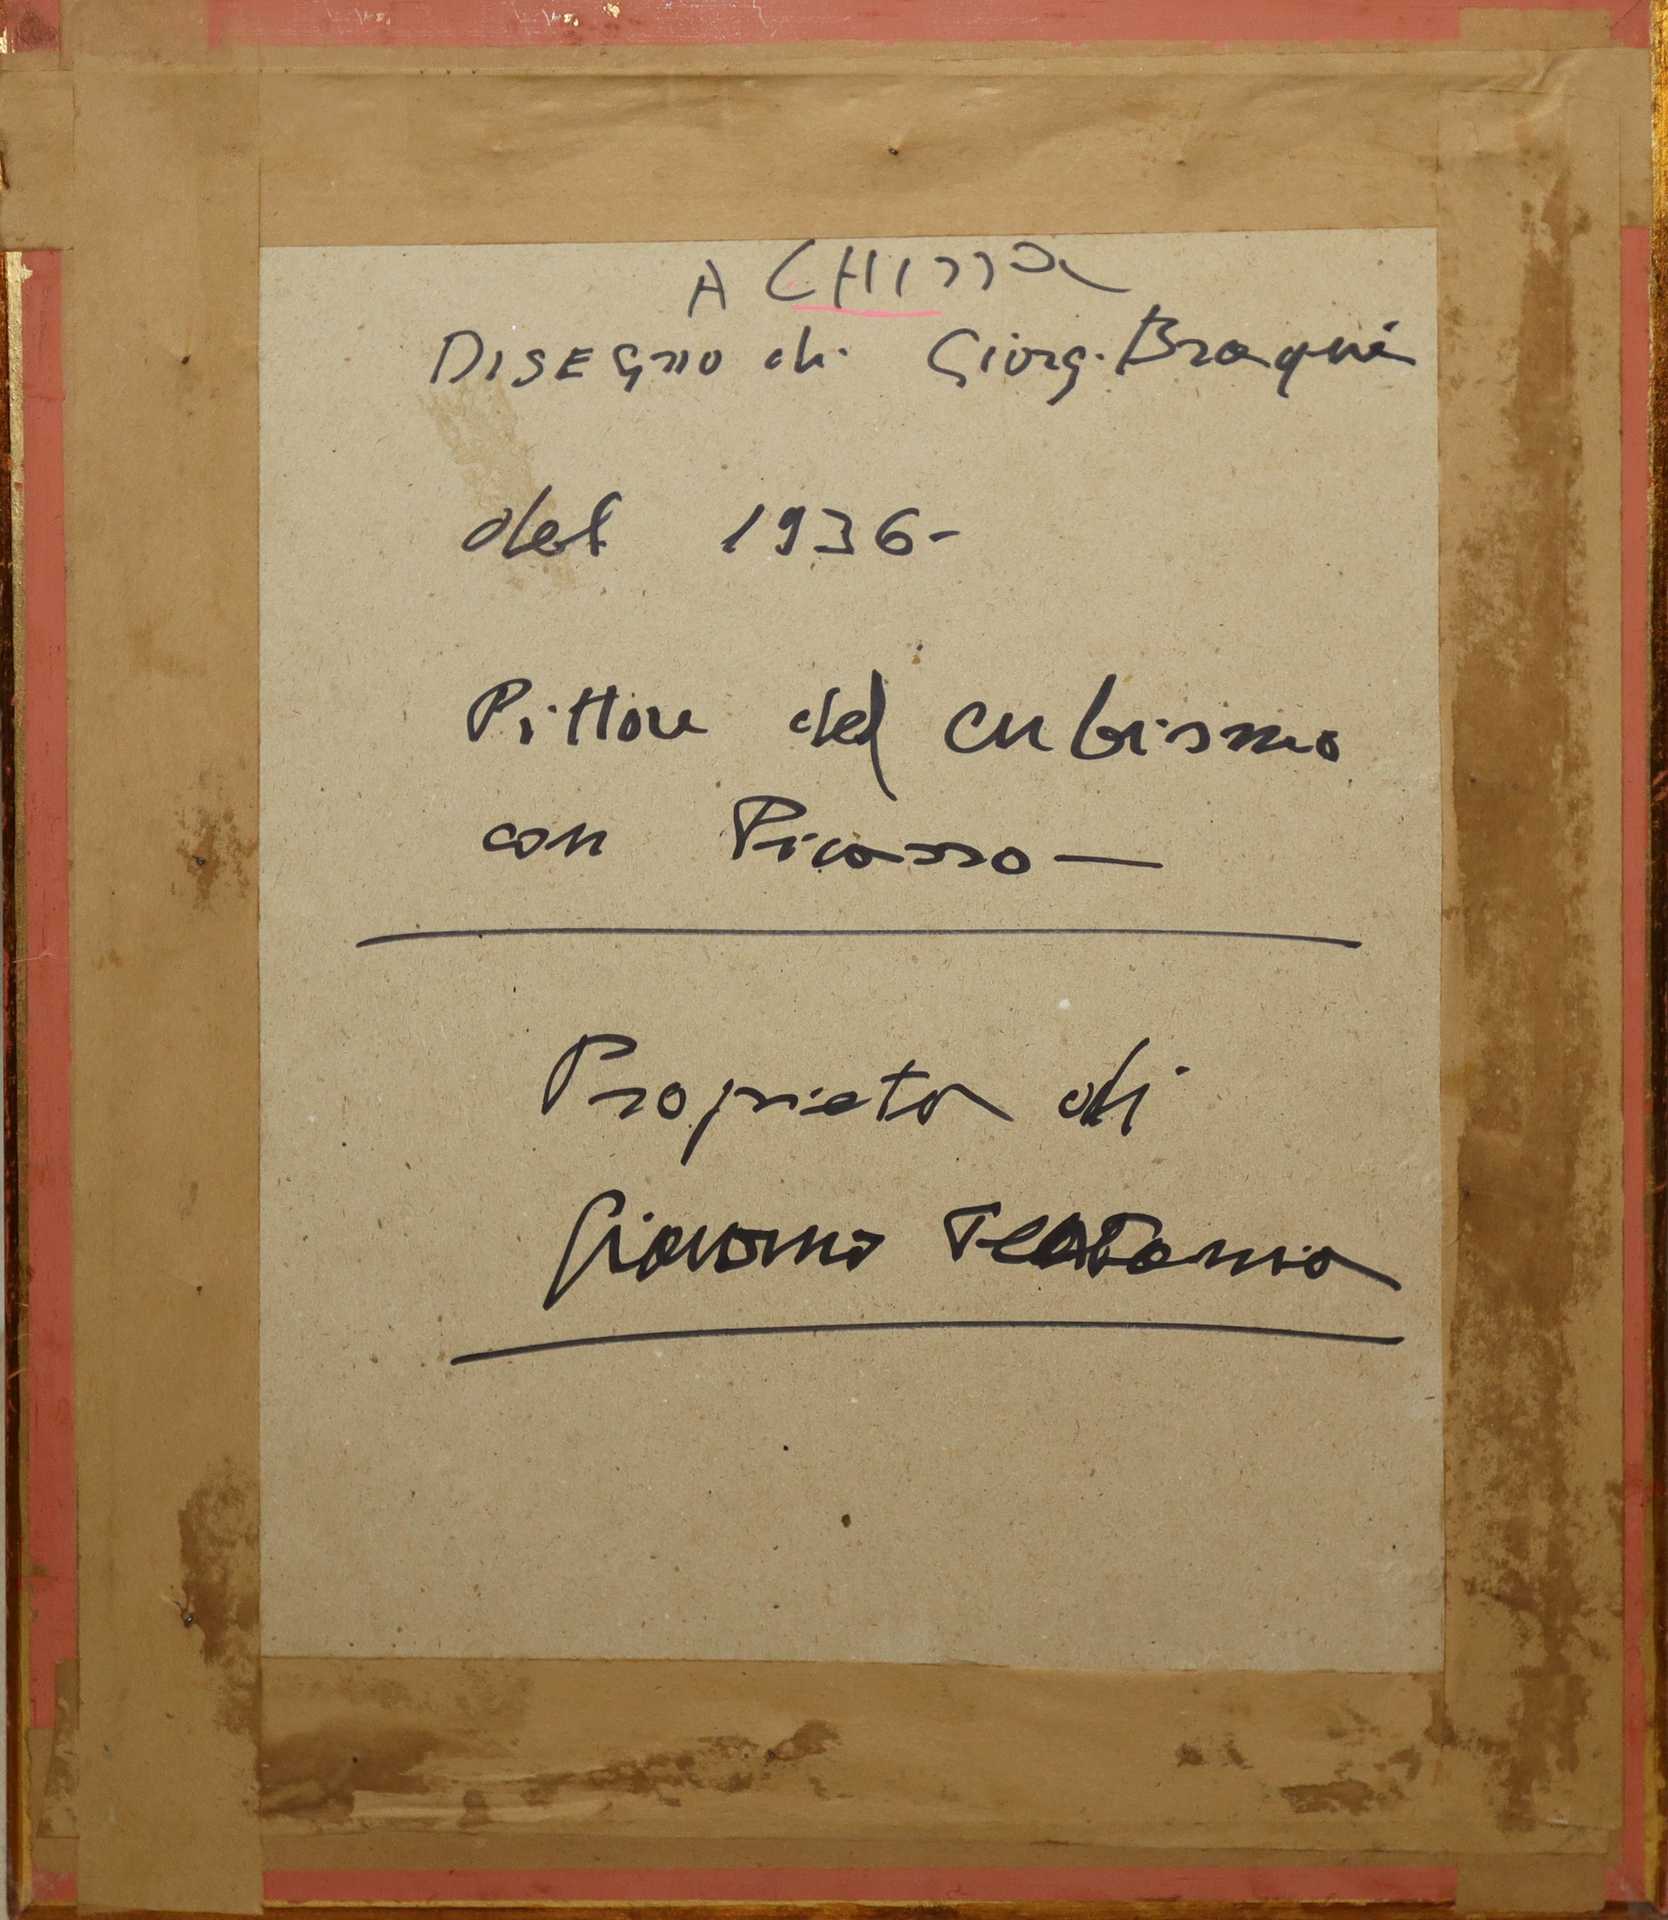 A CHISSA
DISEGno di Giorg. Braque
del 1936-
Pittore del cubismo
con Picasso—
Proprieta di
Giovanni